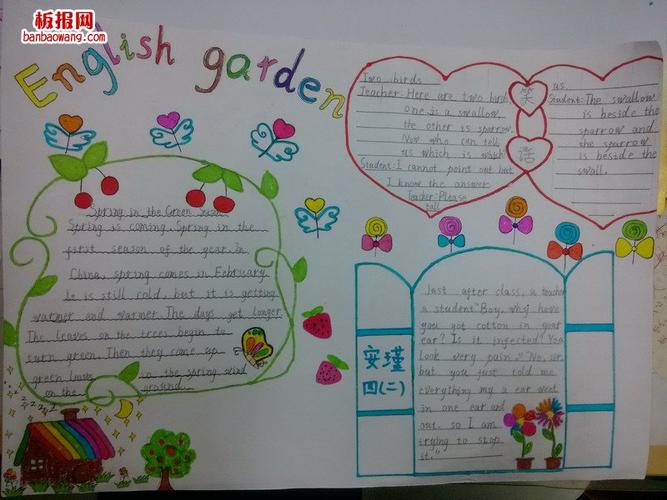 板报网
banbaowang.com
English garden
Two birds
Teacher: Here are two birds,
one is a swallow,
the other is sparrow.
Now who can tell
us which is which
Student: I cannot point out but
I know the answer
Teacher: Please
tall
笑
话
us.
Student: The swallow
is beside the
sparrow and
the sparrow
is beside the
swall.
Spring in the Green Season
Spring is coming. Spring in the
first season of the year. In
China, spring comes in February.
It is still cold, but it is getting
warmer and warmer. The days get longer.
The leaves on the trees begin to
turn green. Then they come up
green leaves in the spring wind
on the ground.
安瑾
四(二)
Last after class, a teacher
a student "Boy, why have
you got cotton in your
ear? Is it infected? You
look very pain." "No, sir,
but you just told me
everything my a ear went
in one ear and
out, so I am
trying to stop
it."